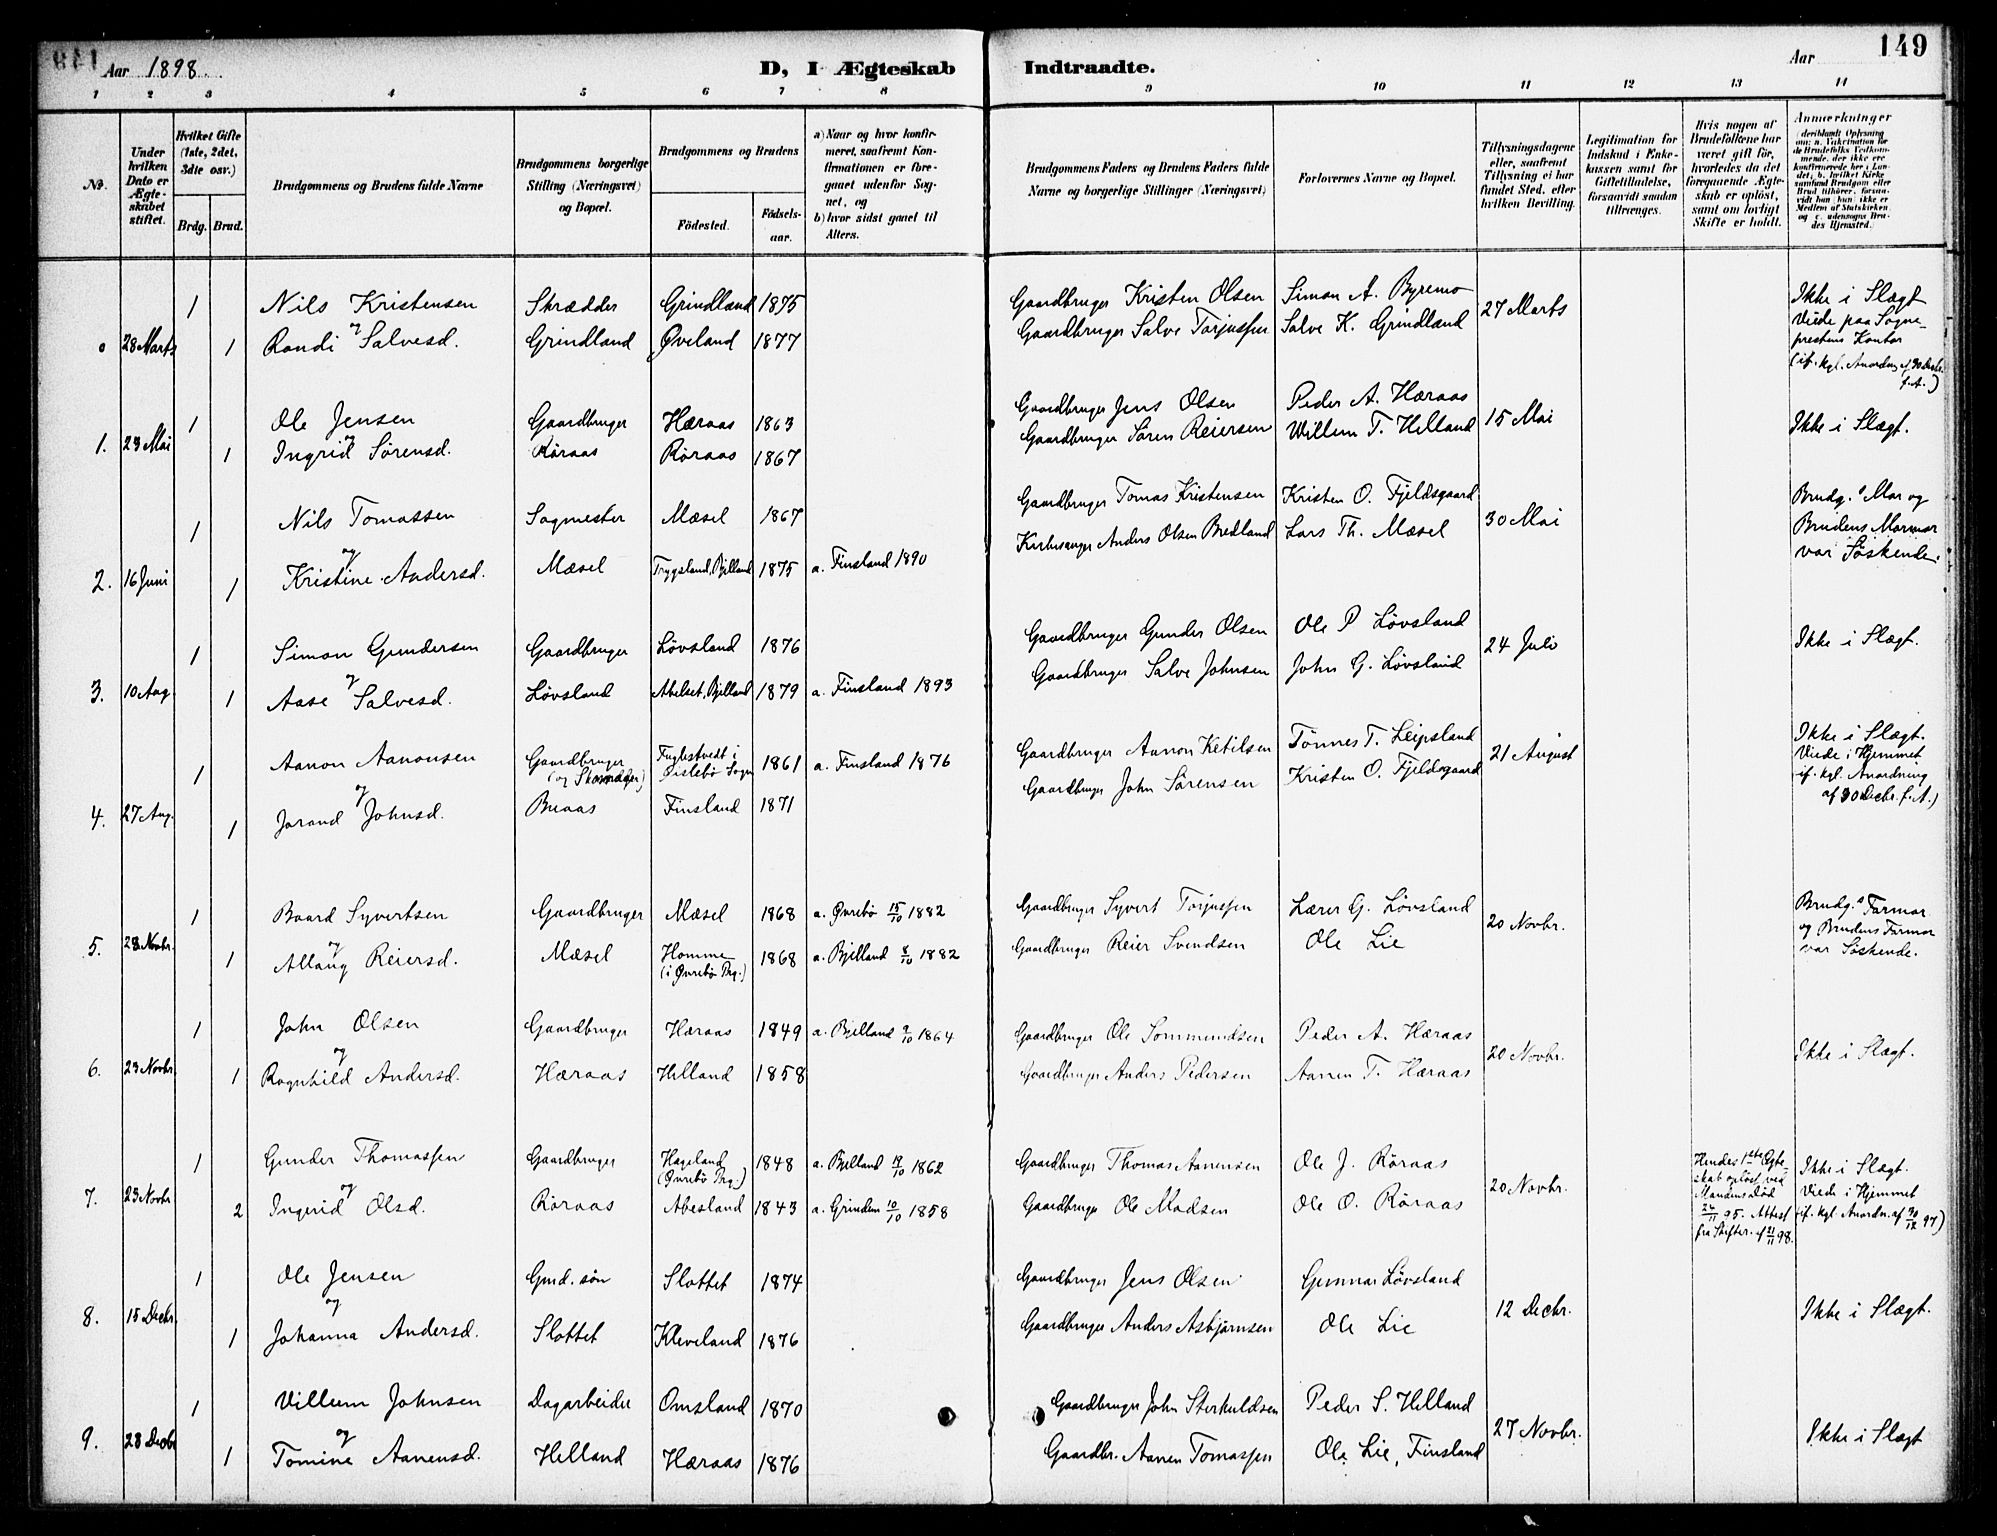 149
Aar 1898.
D, I Ægteskab Indtraadte.
Aar
1 2 3 4 5 6 7 8 9 10 11 12 13 14
No.
Under hvilken Dato er Ægteskabet stiftet.
Hvilket Gifte (1ste, 2det, 3die osv.)
Brdg. Brud.
Brudgommens og Brudens fulde Navne
Brudgommens borgerlige Stilling (Næringsvei) og Bopæl.
Brudgommens og Brudens
Födested. Födsels-aar.
a) Naar og hvor konfirmeret, saafremt Konfirmationen er foregaaet udenfor Sognet, og
b) hvor sidst gaaet til Alters.
Brudgommens Faders og Brudens Faders fulde Navne og borgerlige Stillinger (Næringsvei)
Forlovernes Navne og Bopæl.
Tillysningsdagene eller, saafremt Tillysning ei har fundet Sted, efter hvilken Bevilling.
Legitimation for Indskud i Enkekassen samt for Giftetilladelse, forsaavidt saadan tiltrænges.
Hvis nogen af Brudefolkene har været gift för, hvorledes da det foregaaende Ægteskab er oplöst, samt om lovligt Skifte er holdt.
Anmerkninger (deriblandt Oplysning om: a. Vakcination for de Brudefolks Vedkommende, der ikke ere konfirmerede her i Landet, b. hvilket Kirkesamfund Brudgom eller Brud tilhörer, forsaavidt han (hun) ikke er Medlem af Statskirken, og c. udensogns Brudes Hjemsted.)
1 Nils Kristensen Skrædder Grindland 1875 Gaardbruger Kristen Olsen Simon A. Byremo 27 Marts Ikke i Slægt
og
0 28 Marts 1 Randi Salvesd. Grindland Øveland 1877 Gaardbruger Salve Torjussen Salve K. Grindland Viede paa Sogne-
prestens Kontor
(if. kgl. Anordng af 30 Decbr.
f. A.)
1 Ole Jensen Gaardbruger Hæraas 1863 Gaardbruger Jens Olsen Peder A. Hæraas 15 Mai Ikke i Slægt.
og
1. 23 Mai 1 Ingrid Sørensd. Røraas Røraas 1867 Gaardbruger Søren Reiersen Willem T. Helland
1 Nils Tomassen Sagmester Mæsel 1867 Gaardbruger Tomas Kristensen Kristen O. Fjeldsgaard 30 Mai Brudg.s Mor og
og
2. 16 Juni 1 Kristine Andersd. Mæsel Trygsland, Bjelland 1875 a. Finsland 1890 Kirkesanger Anders Olsen Bredland Lars Th. Mæsel Brudens Mormor
var Søskende.
1 Simon Gundersen Gaardbruger Løvsland 1876 Gaardbruger Gunder Olsen Ole P Løvsland 24 Juli Ikke i Slægt.
og
3. 10 Aug 1 Aase Salvesd. Løvsland Abelset, Bjelland 1879 a. Finsland 1893 Gaardbruger Salve Johnsen John G. Løvsland
1 Aanon Aanonsen Gaardbruger (og Skomager) Fuglestvedt i Øislebø Sogn 1861 a. Finsland 1876 Gaardbruger Aanon Ketilsen Tønnes T. Leipsland 21 August Ikke i Slægt.
og
4. 27 Aug. 1 Jorand Johnsd. Buaas Finsland 1871 Gaardbruger John Sørensen Kristen O. Fjeldsgaard Viede i Hjemmet
if. kgl. Anordning
af 30 Decbr. f. A.)
1 Baard Syvertsen Gaardbruger Mæsel 1868 a. Øvrebø 15/10 1882 Gaardbruger Syvert Torjussen Lærer G. Løvsland 20 Novbr. Brudg.s Farmor
og
5. 23 Novbr. 1 Allaug Reiersd. Mæsel Homme (i Øvrebø Prg.) 1868 a. Bjelland 8/10 1882 Gaardbruger Reier Svendsen Ole Lie og Brudens Farmor
var Søskende.
1 John Olsen Gaardbruger Hæraas 1849 a. Bjelland 9/10 1864 Gaardbruger Ole Sommundsen Peder A. Hæraas 20 Novbr. Ikke i Slægt.
og
6. 23 Novbr 1 Ragnhild Andersd. Hæraas Helland 1858 Gaardbruger Anders Pedersen Aanen T. Hæraas
1 Gunder Thomassen Gaardbruger Hageland (Øvrebø Prg.) 1848 a. Bjelland 19/10 1862 Gaardbruger Thomas Aanensen Ole J. Røraas 20 Novbr. Hendes 1ste Egte-
skab opløst ved
Mandens død
26/11 95. Attest
fra Skifter. af 21/11 98.
og
7. 23 Novbr 2 Ingrid Olsd. Røraas Abesland 1843 a. Grindem 10/10 1858 Gaardbruger Ole Madsen Ole O. Røraas Ikke i Slægt.
Viede i Hjemmet
(if. kgl. Anordn. af 30/12 97)
1 Ole Jensen Gmd. søn Slottet 1874 Gaardbruger Jens Olsen Gunnar Løvsland 12 Decbr. Ikke i Slægt.
og
8. 15 Decbr. 1 Johanna Andersd. Slottet Kleveland 1876 Gaardbruger Anders Asbjørnsen Ole Lie
1 Villum Johnsen Dagarbeider Omsland 1870 Gaardbruger John Sterkuldsen Peder S. Helland 27 Novbr. Ikke i Slægt
og
9. 28 Decbr 1 Tomine Aanensd. Helland Hæraas 1876 Gaardbr. Aanen Tomassen Ole Lie, Finsland